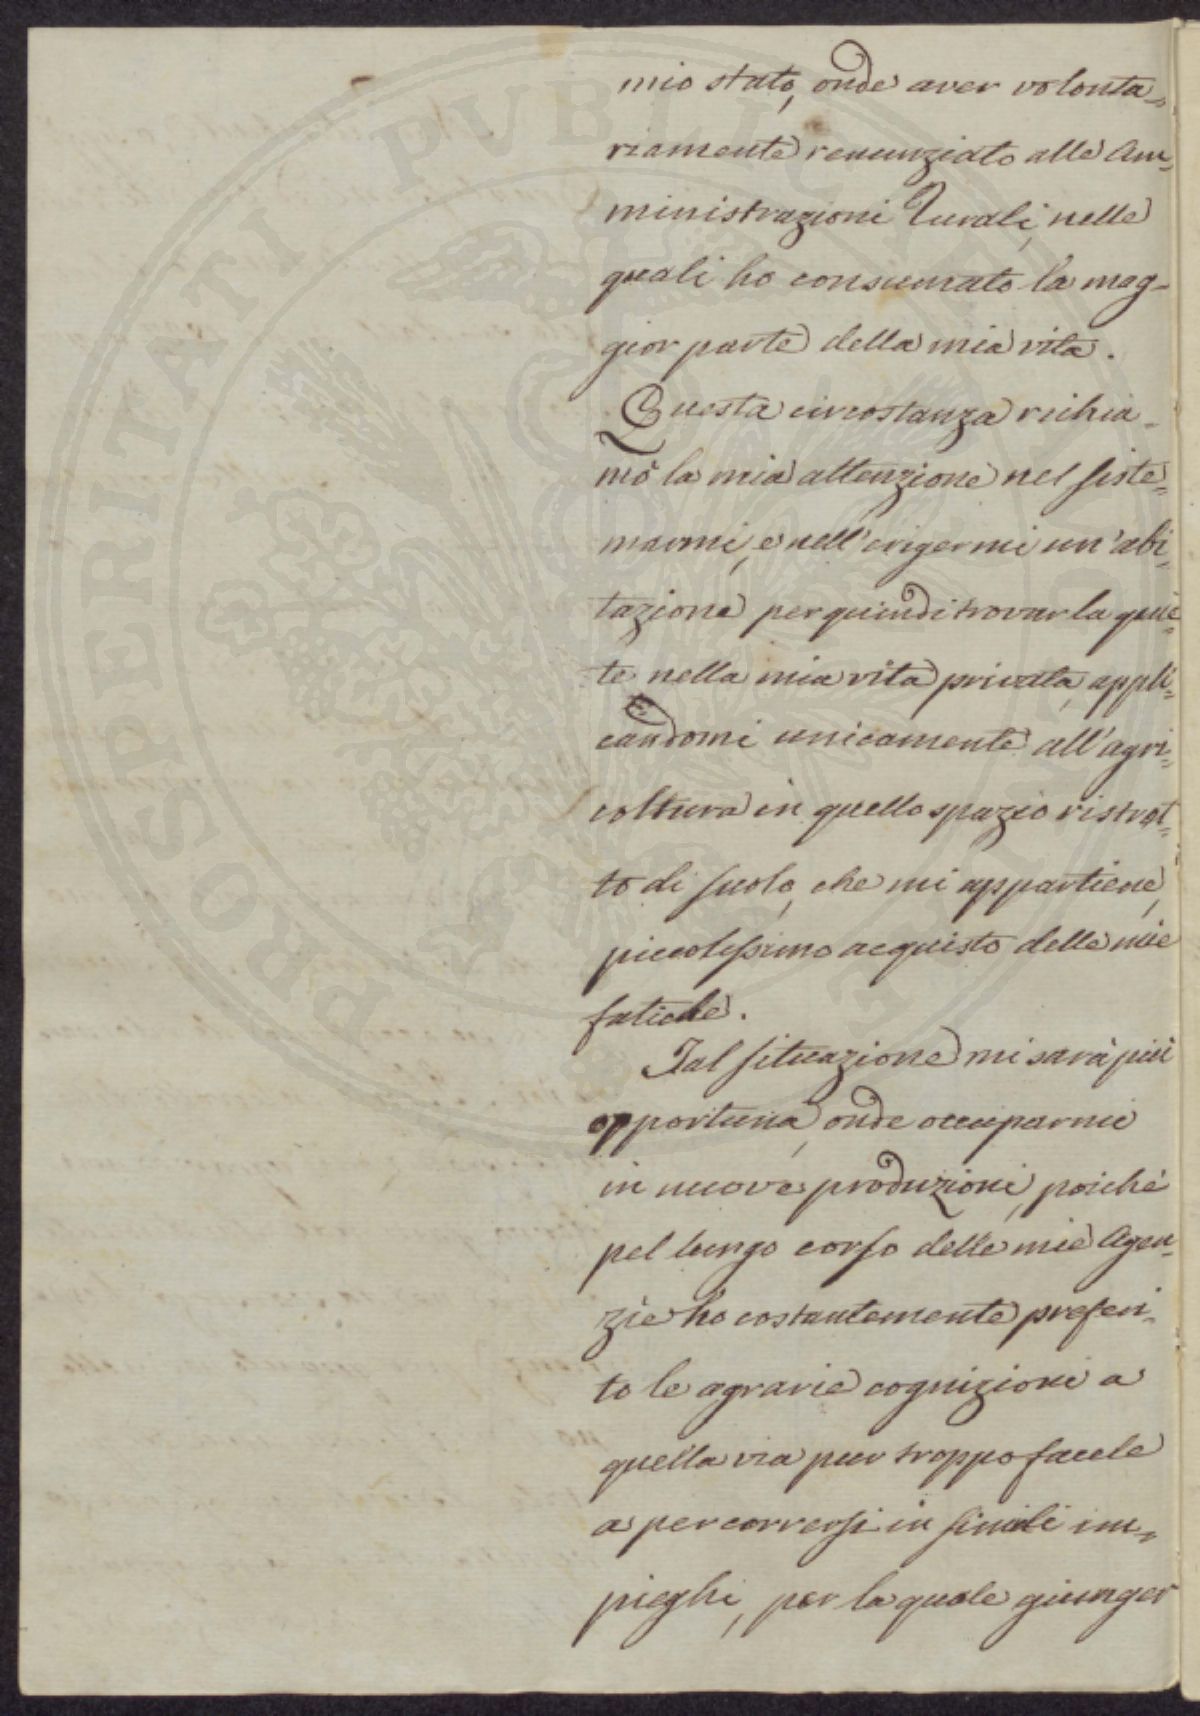 mio stato, onde aver volonta=
riamente renunziato alle Am=
ministrazioni Rurali, nelle
quali ho consumato la mag-
gior parte della mia vita.
Questa circostanza richia-
mò la mia attenzione nel siste=
marmi, e nell'erigermi un'abi=
tazione per quindi trovar la quie=
te nella mia vita privata, appli=
candomi unicamente all'agri=
coltura in quello spazio ristret=
to di suolo, che mi appartiene,
piccolissimo acquisto delle mie
fatiche.
Tal situazione mi sarà più
opportuna, onde occuparmi
in nuove produzioni, poiché
pel lungo corso delle mie Agen=
zie ho costantemente preferi=
to le agrarie cognizioni a
quella via pur troppo facile
a percorrersi in simili im=
pieghi, per la quale giunger
PROSPERITATI PVBLICAE